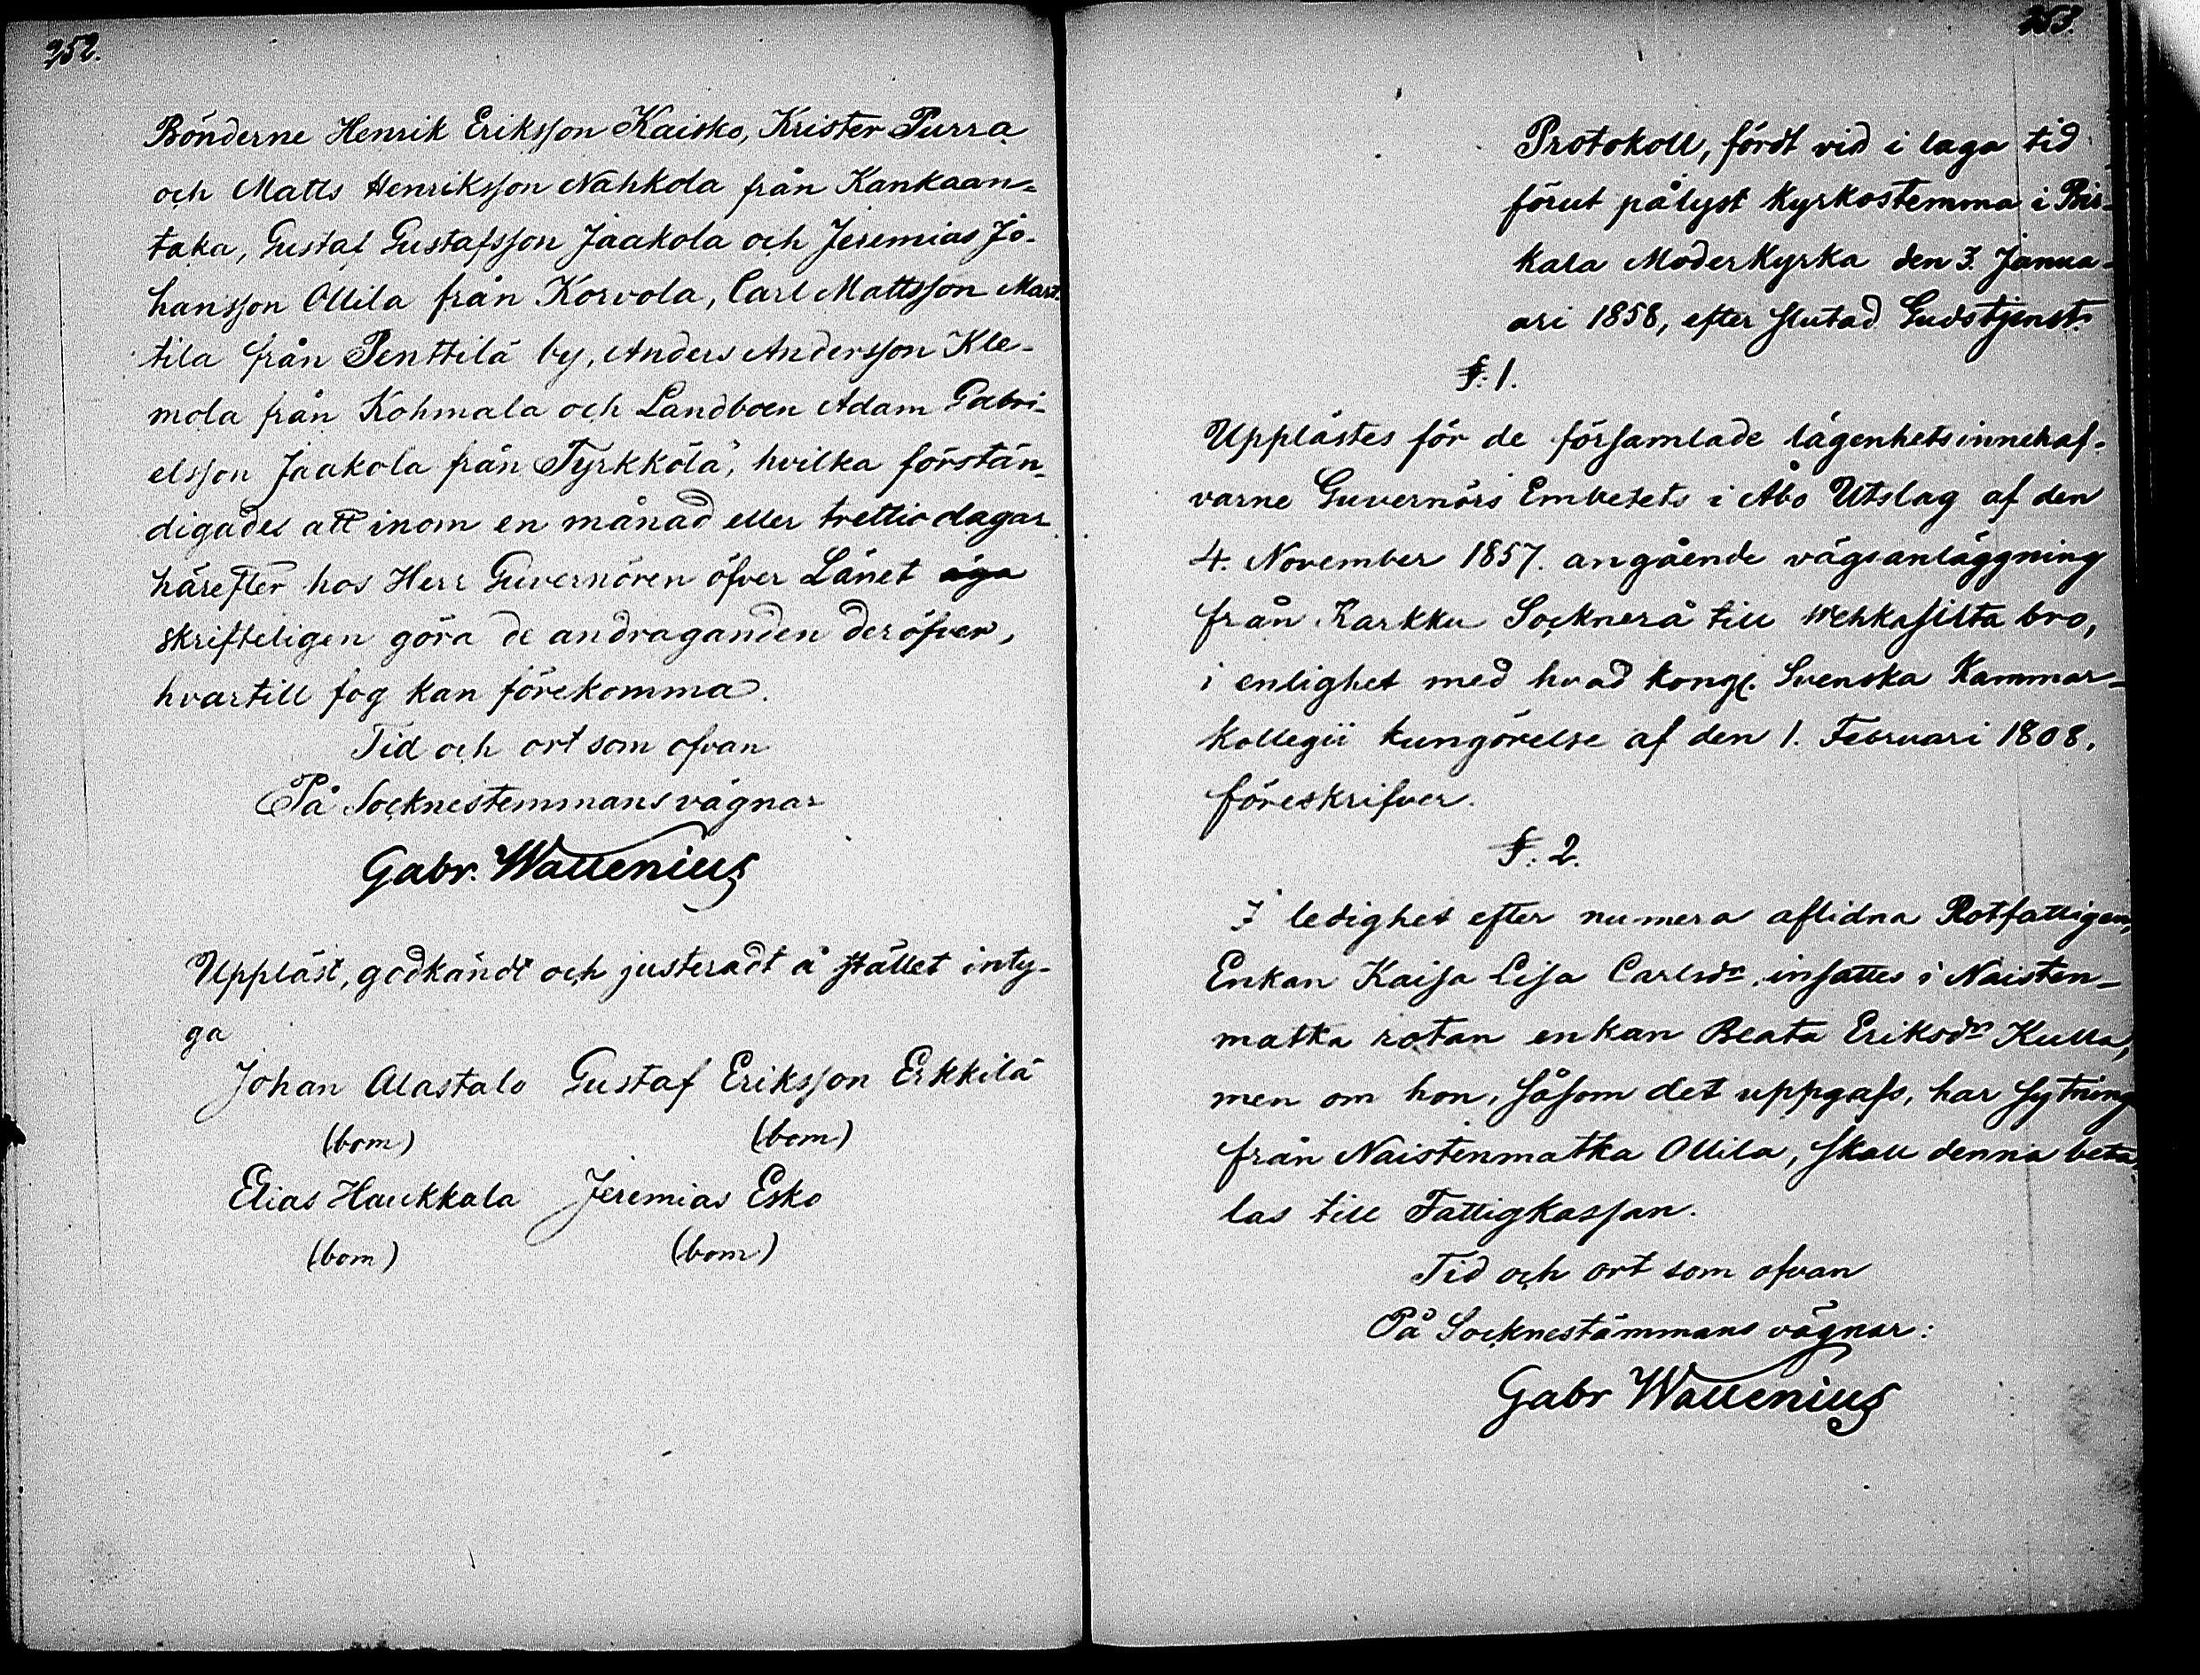 252.
Bönderne Henrik Eriksson Kaisko, Krister Purra
och Matts Henriksson Nahkola från Kankaan-
taka, Gustaf Gustafsson Jaakola och Jeremias Jo-
hansson Ollila från Korvola, Carl Mattsson Mart-
tila från Penttilä by, Anders Andersson Kle-
mola från Kohmala och Landboen Adam Gabri-
elsson Jaakola från Tyrkkölä, hvilka förstän-
digades att inom en månad eller trettio dagar
härefter hos Herr Guvernören öfver Länet äga
skrifteligen göra de andraganden deröfver,
hvartill fog kan förekomma.
Tid och ort som ofvan
På Socknestemmans vägnar
Gabr. Wallenius
Uppläst, godkändt och justeradt å stället inty-
ga
Johan Alastalo Gustaf Eriksson Erkkilä
(bom) (bom)
Elias Haukkala Jeremias Esko
(bom) (bom)
253.
Protokoll, fördt vid i laga tid
förut pålyst Kyrkostemma i Bir-
kala Moderkyrka den 3. Janua-
ari 1858, efter slutad Gudstjenst.
§. 1.
Upplästes för de församlade lägenhetsinnehaf-
varne Guvernörs Embetets i Åbo Utslag af den
4. November 1857. angående vägsanläggning
från Karkku Socknerå till Wehkasilta bro,
i enlighet med hvad Kongl. Svenska Kammar-
kollegii kungörelse af den 1. Februari 1808.
föreskrifver.
§. 2.
I ledighet efter numera aflidna Rotfattigen,
Enkan Kaisa Lisa Carlsdr. insattes i Naisten-
matka rotan enkan Beata Eriksdr Kulla,
men om hon, såsom det uppgafs, har sytning
från Naistenmatka Ollila, skall denna beta-
las till Fattigkassan.
Tid och ort som ofvan
På Socknestämmans vägnar:
Gabr Wallenius